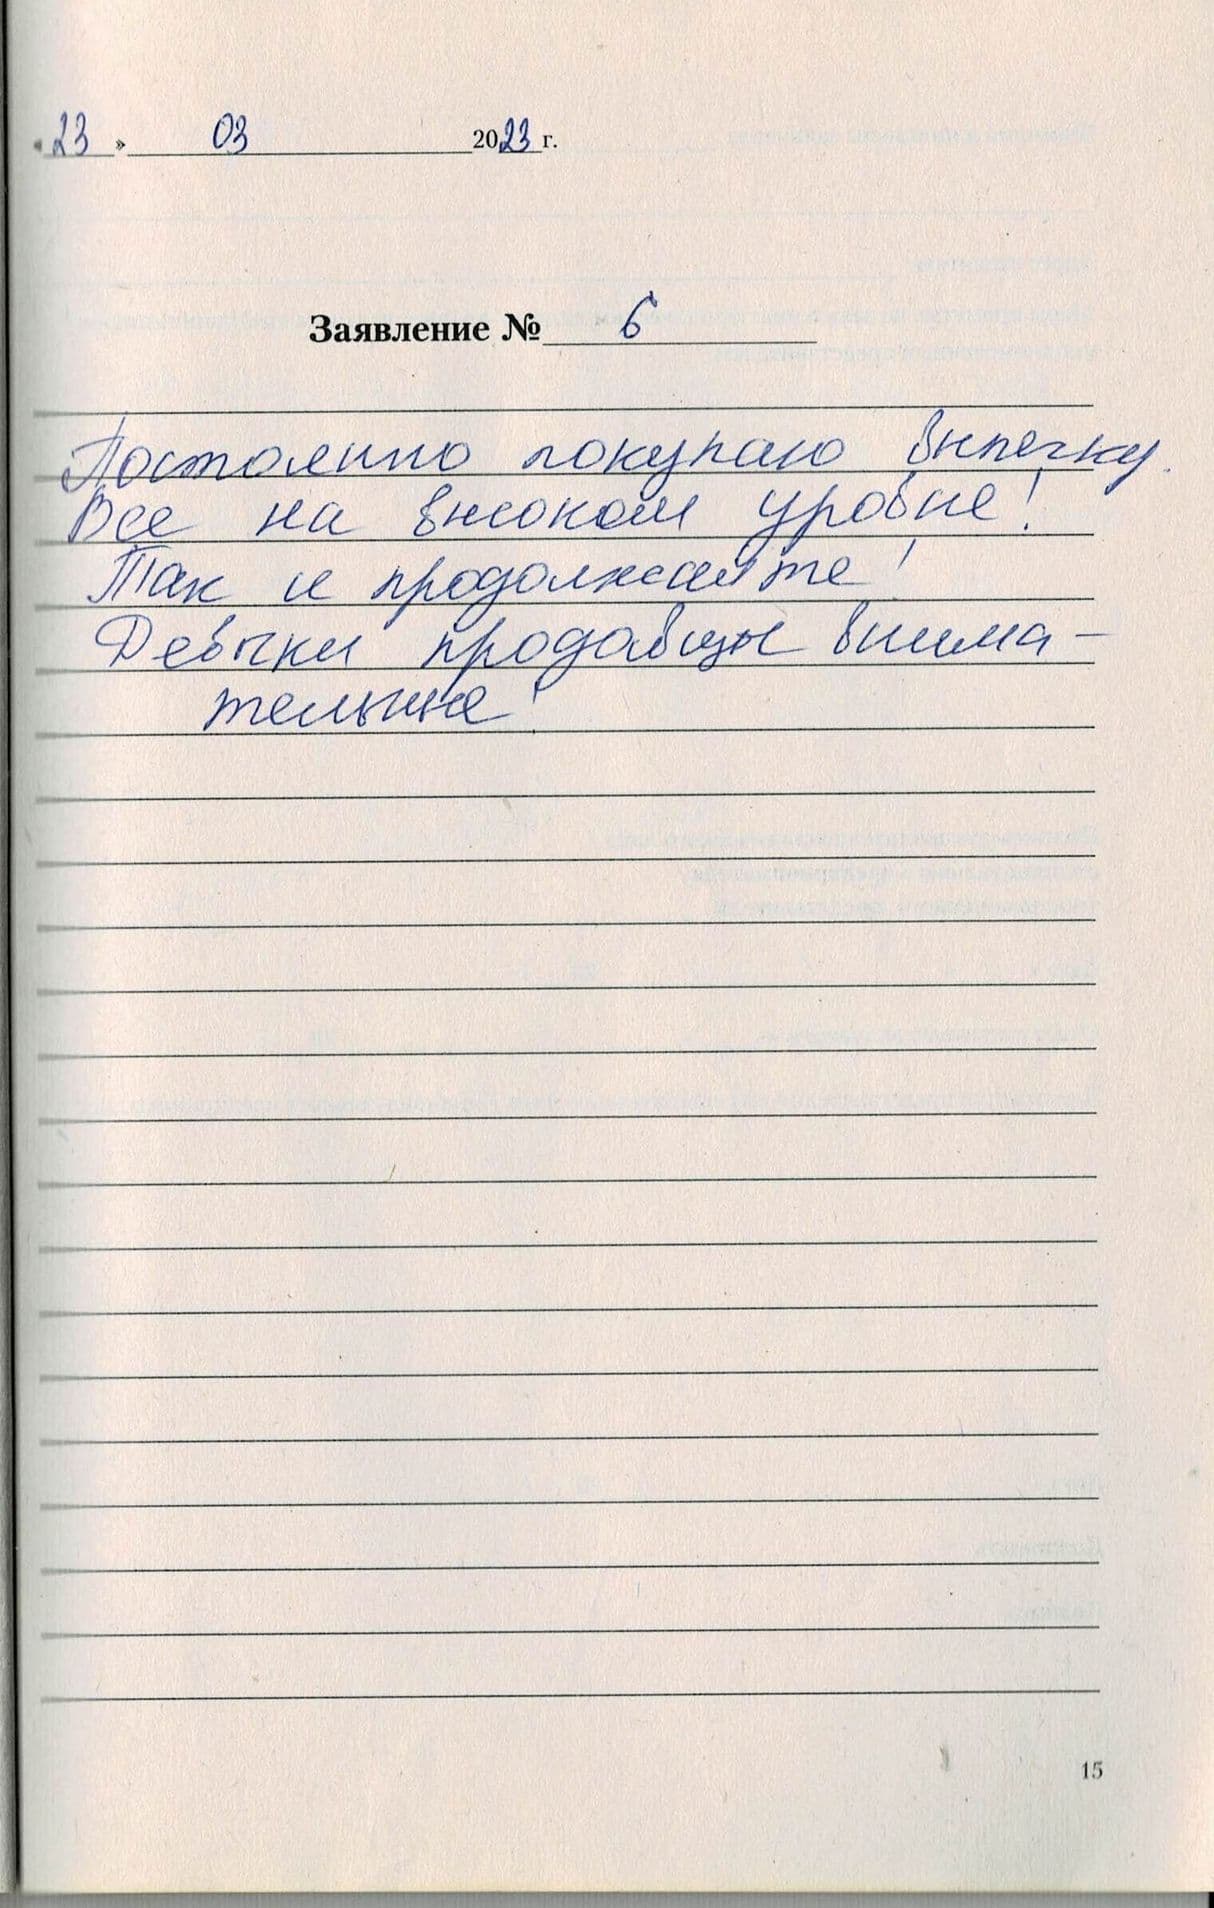 «23» 03 2023 г.
Заявление № 6
Постоянно покупаю выпечку.
Все на высоком уровне!
Так и продолжайте!
Девочки продавцы внима-
тельные!
15